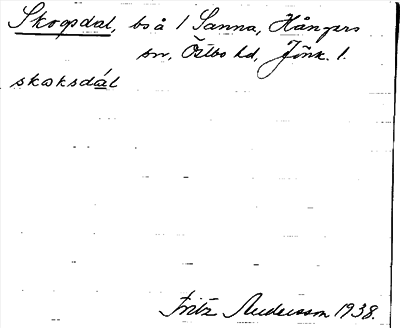 Skogsdal, bs å 1 Sanna, Hångers
sn, Östbo hd, Jönk. l.
skɷksdál
Fritz Andersson 1938.